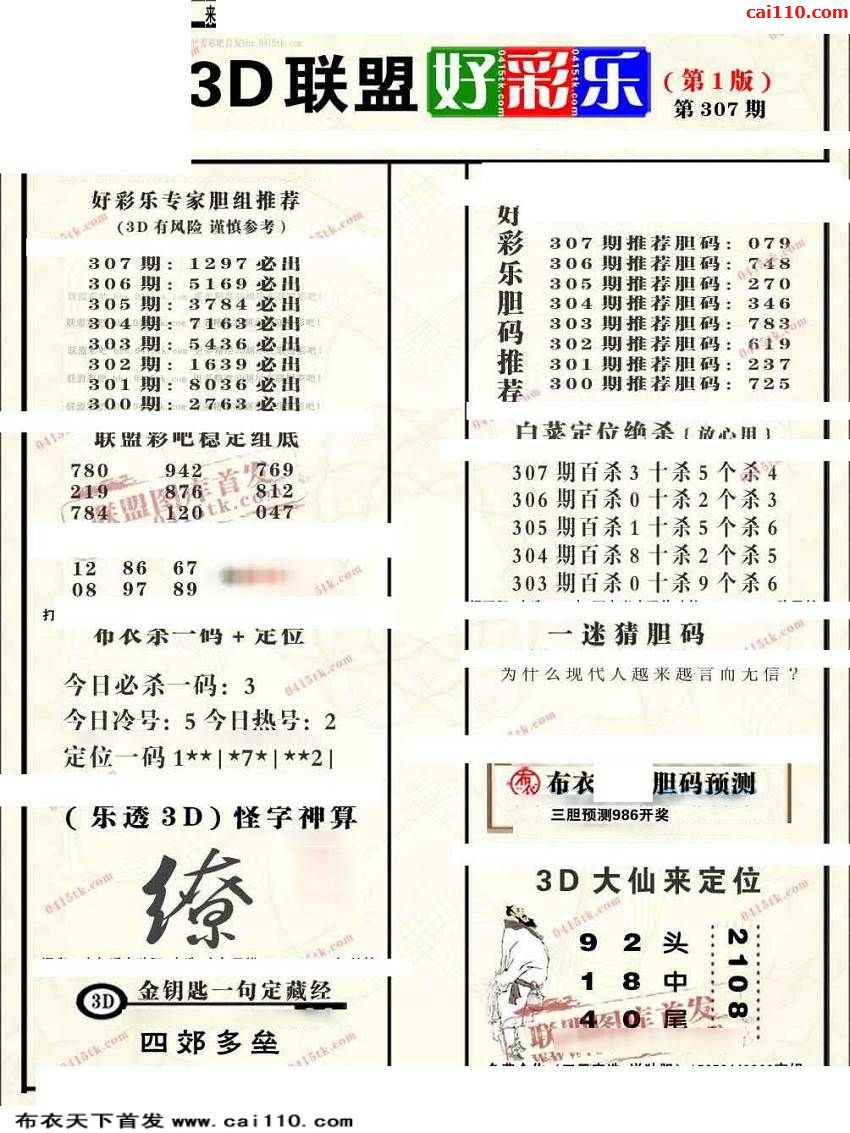 来
cai110.com
3D联盟好彩乐
(第1版)
第307期
好彩乐专家胆组推荐
(3D有风险 谨慎参考)
307期: 1297必出
306期: 5169必出
305期: 3784必出
304期: 7163必出
303期: 5436必出
302期: 1639必出
301期: 8036必出
300期: 2763必出
联盟彩吧稳定组底
780 942 769
219 876 812
784 120 047
12 86 67
08 97 89
打
布衣杀一码+定位
今日必杀一码: 3
今日冷号: 5 今日热号: 2
定位一码 1**|*7*|**2|
(乐透3D)怪字神算
缭
3D 金钥匙一句定藏经
四郊多垒
好彩乐胆码推荐
307期推荐胆码: 079
306期推荐胆码: 748
305期推荐胆码: 270
304期推荐胆码: 346
303期推荐胆码: 783
302期推荐胆码: 619
301期推荐胆码: 237
300期推荐胆码: 725
白菜定位绝杀{放心用}
307期百杀3十杀5个杀4
306期百杀0十杀2个杀3
305期百杀1十杀5个杀6
304期百杀8十杀2个杀5
303期百杀0十杀9个杀6
一迷猜胆码
为什么现代人越来越言而无信?
布衣 胆码预测
三胆预测986开奖
3D大仙来定位
9 2 头
1 8 中
4 0 尾
2108
联盟图库首发
0415tk.com
布衣天下首发 www.cai110.com